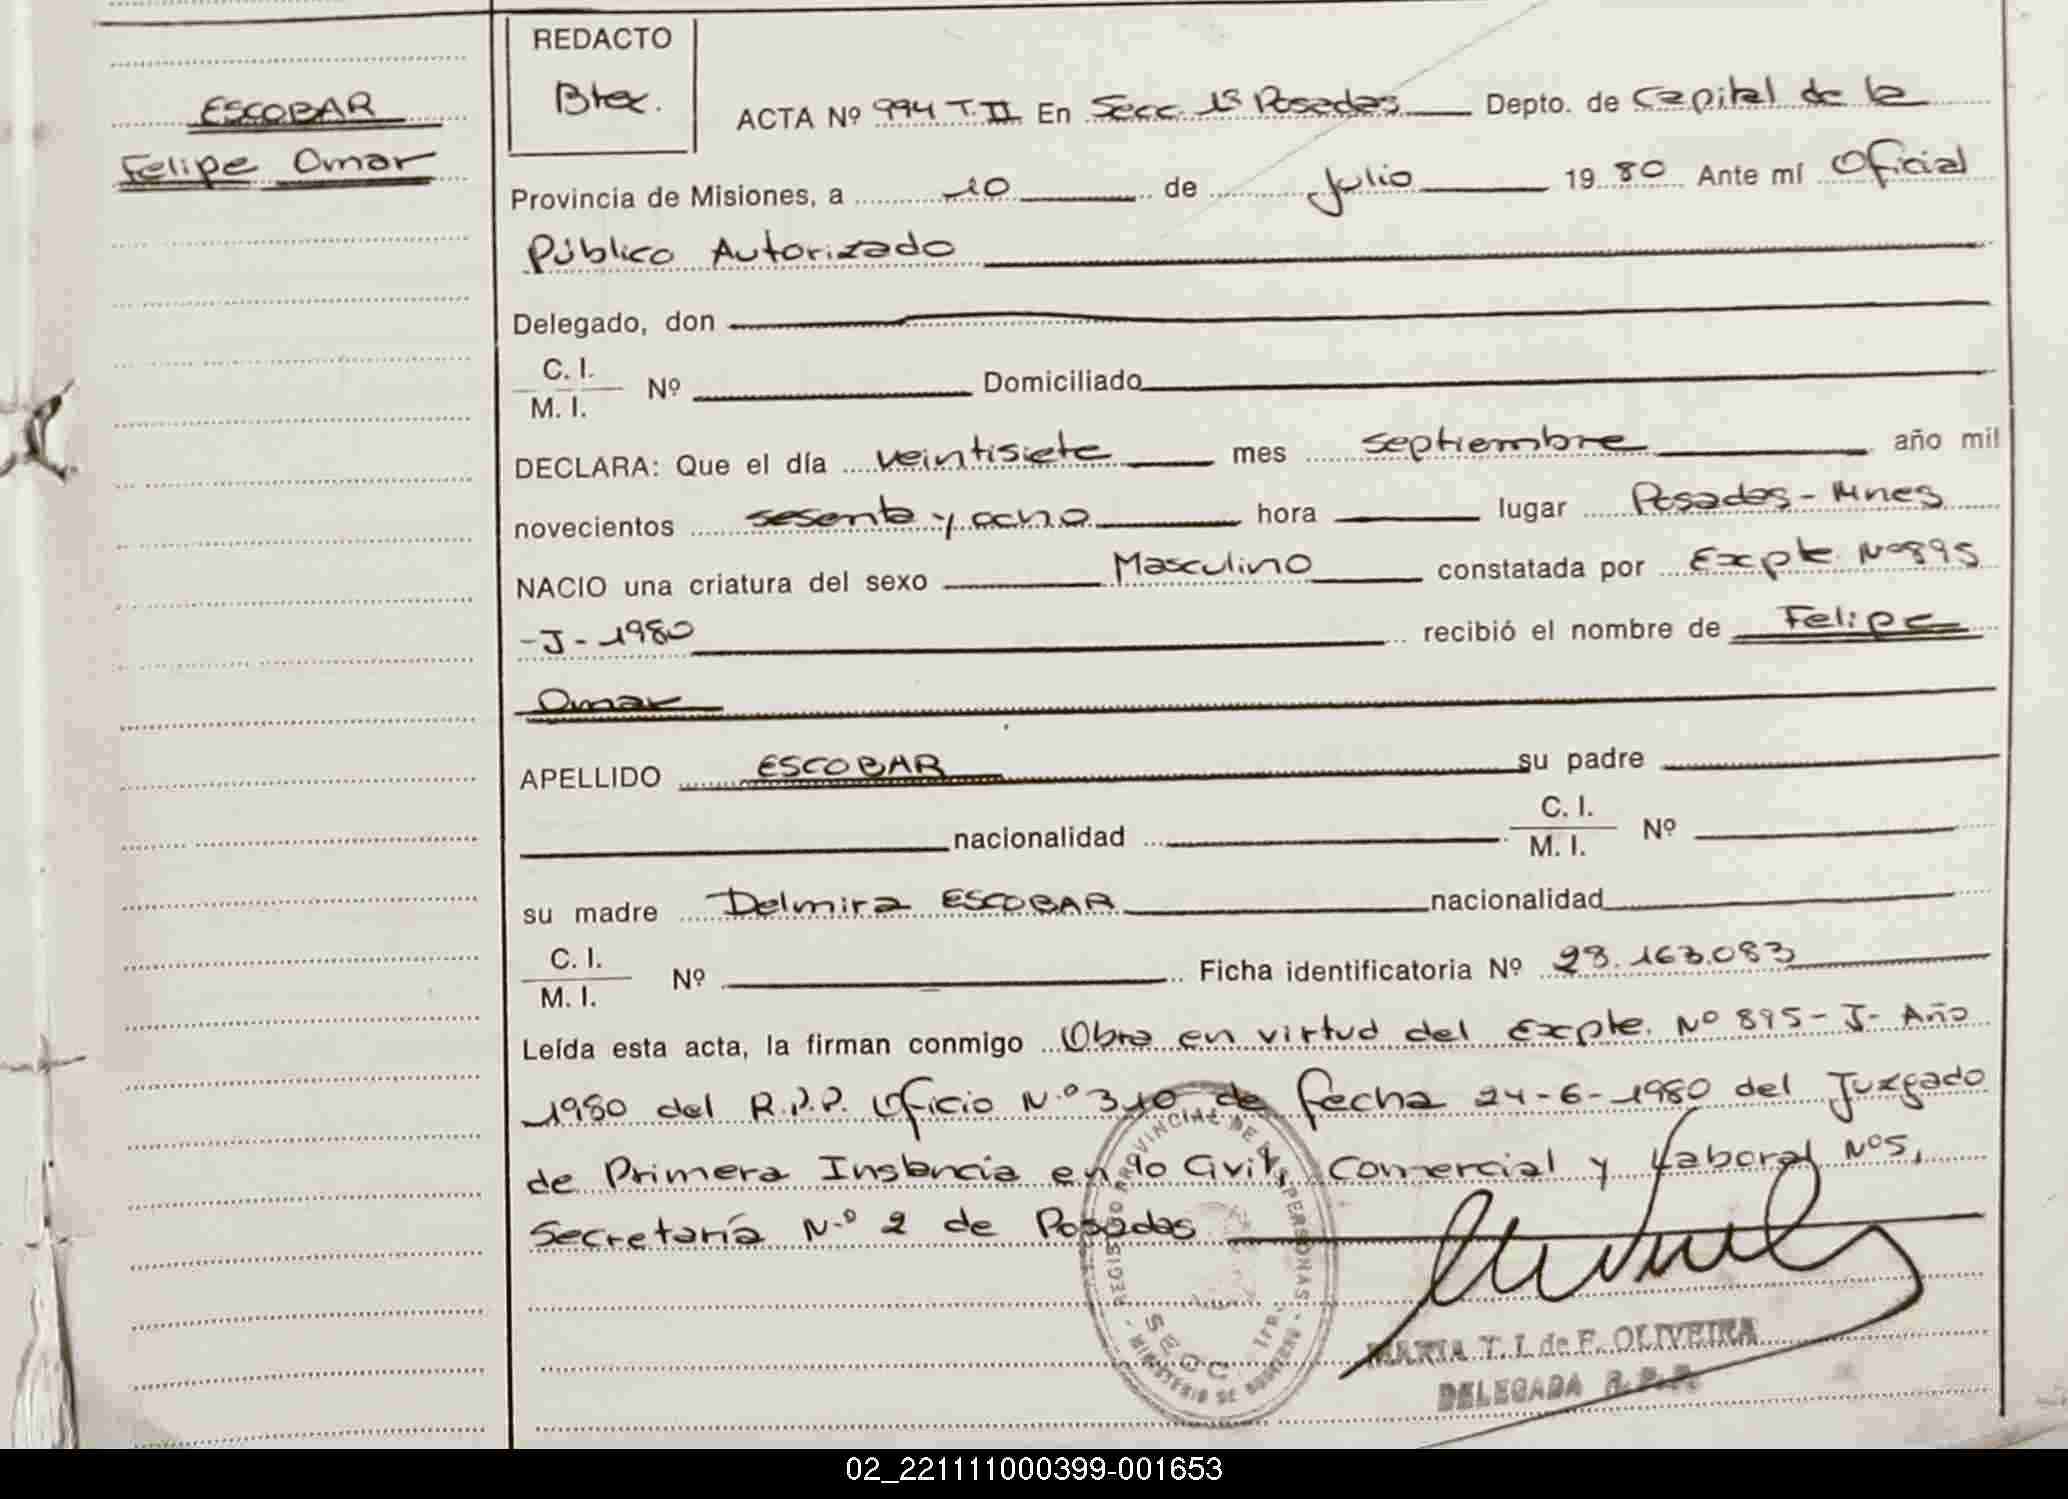 REDACTO
Btex.
ESCOBAR
Felipe Omar
ACTA Nº 994 T. II En Secc. 1ª Posadas Depto. de Capital de la
Provincia de Misiones, a 10 de Julio 19 80 Ante mí Oficial
Público Autorizado
Delegado, don
C. I.
M. I. Nº Domiciliado
DECLARA: Que el día veintisiete mes septiembre año mil
novecientos sesenta y ocho hora lugar Posadas - Mnes
NACIO una criatura del sexo Masculino constatada por Expte. Nº 895
- J - 1980 recibió el nombre de Felipe
Omar
APELLIDO ESCOBAR su padre
nacionalidad C. I.
M. I. Nº
su madre Delmira ESCOBAR nacionalidad
C. I.
M. I. Nº Ficha identificatoria Nº 28.163.083
Leída esta acta, la firman conmigo Obra en virtud del Expte. Nº 895 - J - Año
1980 del R.P.P. Oficio N.º 310 de fecha 24-6-1980 del Juzgado
de Primera Instancia en lo Civil, Comercial y Laboral Nº 5,
Secretaría N.º 2 de Posadas
REGISTRO PROVINCIAL DE LAS PERSONAS
SECC. 1ra.
- MINISTERIO DE GOBIERNO -
MARIA T. I. de F. OLIVEIRA
DELEGADA R. P. P.
02_221111000399-001653